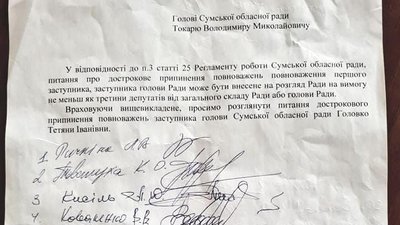 Голові Сумської обласної ради
Токарю Володимиру Миколайовичу
У відповідності до п.3 статті 25 Регламенту роботи Сумської обласної ради,
питання про дострокове припинення повноважень повноваження першого
заступника, заступника голови Ради може бути внесене на розгляд Ради на вимогу
не меньш як третини депутатів від загального складу Ради або голови Ради.
Враховуючи вищевикладене, просимо розглянути питання дострокового
припинення повноважень заступника голови Сумської обласної ради Головко
Тетяни Іванівни.
1
2 К. О.
3 Кисіль
4 Коваленко В.В.